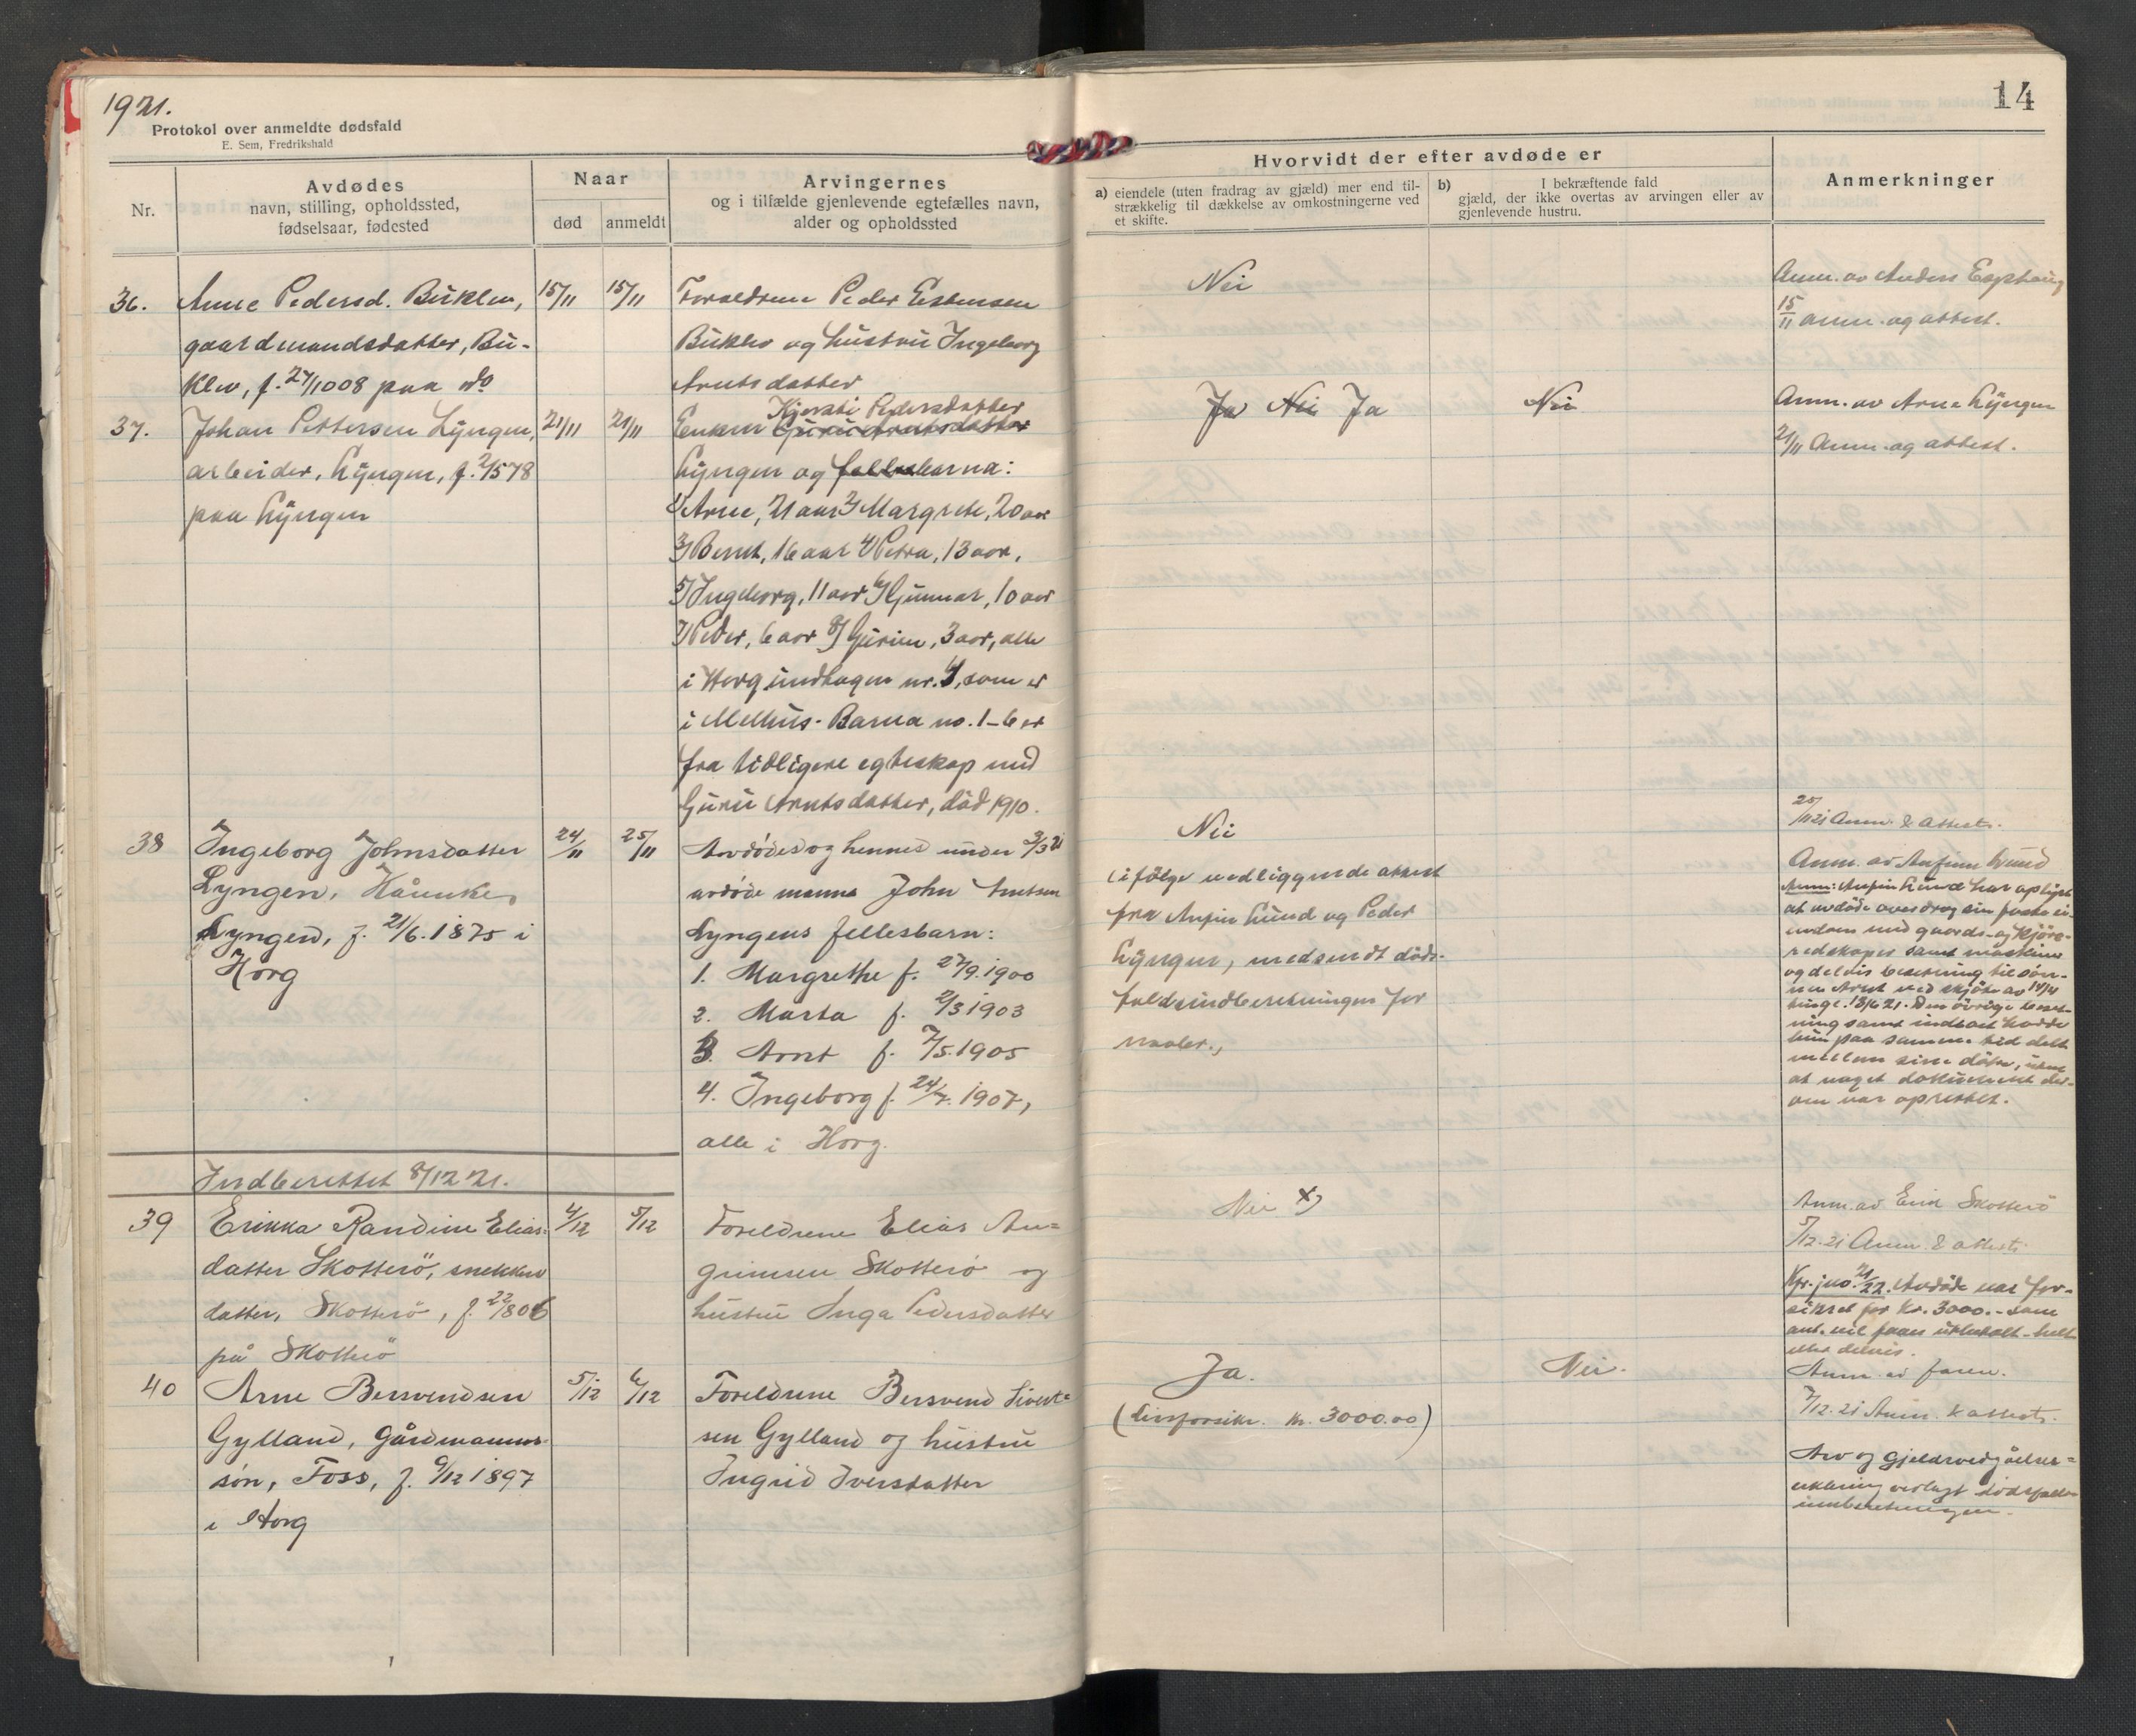 1921.
Protokol over anmeldte dødsfald
E. Sem, Fredrikshald
Nr.
Avdødes
navn, stilling, opholdssted,
fødselsaar, fødested
Naar
død
anmeldt
Arvingernes
og i tilfælde gjenlevende egtefælles navn,
alder og opholdssted
36.
Anne Pedersd. Buklev,
gaardmandsdatter, Bu-
klev, f. 27/1008 paa do
15/11
15/11
Foreldrene Peder Estensen
Buklev og hustru Ingeborg
Arntsdatter
37.
Johan Pettersen Lyngen,
arbeider, Lyngen, f. 2/578
paa Lyngen
21/11
21/11
Kjersti Pedersdatter
Enken Guru Arntsdatter
Lyngen og fellesbarna:
1) Arne, 21 aar 2) Margrete, 20 aar
3) Bernt, 16 aar 4) Petra, 13 aar,
5) Ingeborg, 11 aar 6) Gunnar, 10 aar
7) Peder, 6 aar 8) Gurine, 3 aar, alle
i Horg undtagen nr. 4, som er
i Melhus. Barna no. 1-6 er
fra tidligere egteskap med
Guru Arntsdatter, död 1910.
38
Ingeborg Johnsdatter
Lyngen, Kårenke,
Lyngen, f. 21/6.1875 i
Horg
24/11
25/11
Avdødes og hennes under 3/3 21
avdøde manns John Arntsen
Lyngens fellesbarn:
1. Margrethe f. 27/9.1900
2. Marta f. 2/3 1903
3. Arnt f. 7/5.1905
4. Ingeborg f. 24/7. 1907,
alle i Horg.
Indberettet 8/12 21.
39
Erikka Randine Elias-
datter Skotterö, snekker
datter, Skotterö, f. 22/806
på Skotterö
4/12
5/12
Foreldrene Elias An=
grimsen Skotterö og
hustru Inga Pedersdatter
40
Arne Bersvendsen
Gylland, Gårdmanns
søn, Foss, f. 9/12 1897
i Horg
5/12
6/12
Foreldrene Bersvend Sivert=
sen Gylland og hustru
Ingrid Iversdatter
14
Hvorvidt der efter avdøde er
a) eiendele (uten fradrag av gjæld) mer end til-
strækkelig til dækkelse av omkostningerne ved
et skifte.
b) I bekræftende fald
gjæld, der ikke overtas av arvingen eller av
gjenlevende hustru.
Anmerkninger
Nei
Anm. av Anders
15/11 anm. og attest.
Ja Nei Ja
Nei
Anm. av Arne Lyngen
21/11 Anm. og attest.
Nei
i følge vedliggende attest
fra Anfin Lund og Peder
Lyngen, medsendt döds-
faldsindberetningen for
25/11 21 Anm. & attest.
Anm. av Anfinn Lund
Anm: Anfin Lund har oplyst
at avdöde overdrog sin faste ei-
endom med gaards- og kjöre-
redskaper samt maskiner
og delvis besetning til søn-
nen Arnt ved skjöte av 14/4
tingl. 13/6 21. Den övrige beset-
ning samt indbo hadde
hun paa samme tid delt
mellem sine döttre, uten
at noget dokument der-
om var oprettet.
Nei x)
Anm. av Erik Skotterö
5/12.21 Anm. & attest.
Kfr. jno. 21/22. Avdöde var for-
sikret for kr. 3000.- som
ant. vil faaes utbetalt - helt
eller delvis.
Ja.
(Livsforsikr. kr. 3000.00)
Nei.
Anm. av faren.
7/12.21 Anm. & attest.
Arv og gjeldsvedgåelses=
erklæring vedlagt dödsfalls
innberetningen.